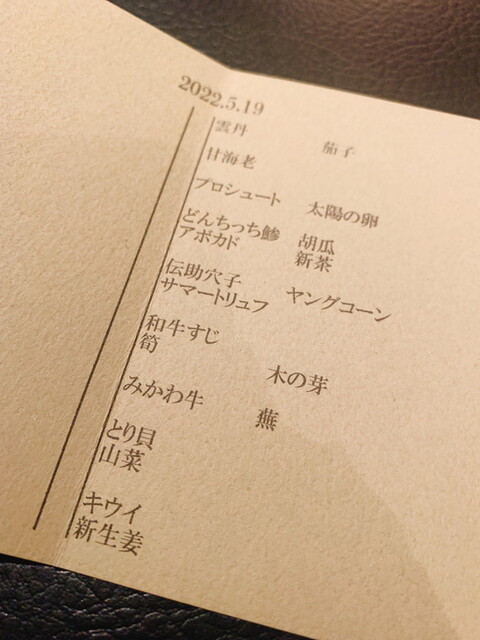 2022.5.19
雲丹 茄子
甘海老
プロシュート 太陽の卵
どんちっち鯵 胡瓜
アボカド 新茶
伝助穴子 ヤングコーン
サマートリュフ
和牛すじ
筍 木の芽
みかわ牛 蕪
とり貝
山菜
キウイ
新生姜